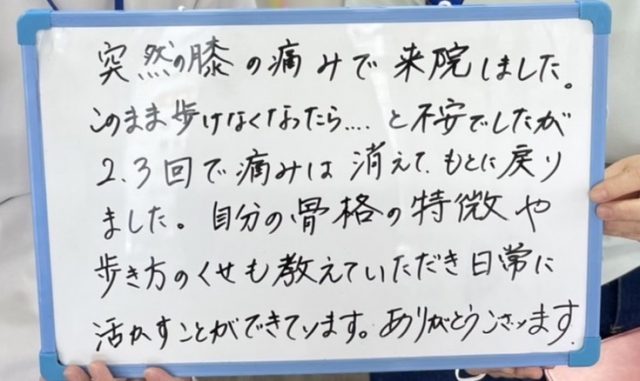 突然の膝の痛みで来院しました。
このまま歩けなくなったら....と不安でしたが
2.3回で痛みは消えて、もとに戻り
ました。自分の骨格の特徴や
歩き方のくせも教えていただき日常に
活かすことができています。ありがとうございます